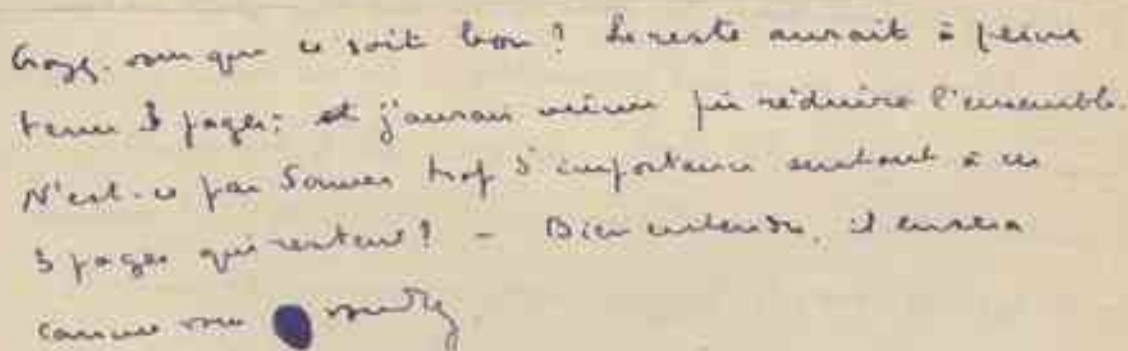 Croyez-vous que ce soit bon ? Le reste aurait à peine
tenu 3 pages; et j'aurais même pu réduire l'ensemble.
N'est-ce pas donner trop d'importance surtout à ces
3 pages qui restent ? – Bien entendu, il en sera
comme vous voudrez